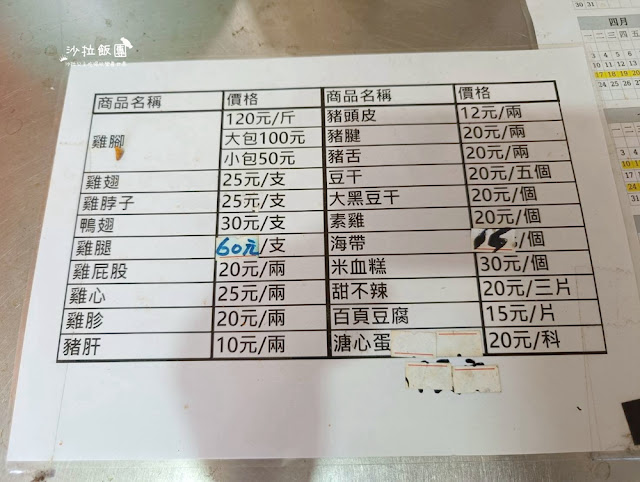 沙拉飯團
商品名稱 價格 商品名稱 價格
雞腳 120元/斤 豬頭皮 12元/兩
大包100元 豬腱 20元/兩
小包50元 豬舌 20元/兩
雞翅 25元/支 豆干 20元/五個
雞脖子 25元/支 大黑豆干 20元/個
鴨翅 30元/支 素雞 20元/個
雞腿 60元/支 海帶 15/個
雞屁股 20元/兩 米血糕 30元/個
雞心 25元/兩 甜不辣 20元/三片
雞胗 20元/兩 百頁豆腐 15元/片
豬肝 10元/兩 溏心蛋 20元/科
30 31
四月
一 二 三 四 五
3 4 5 6
10 11 12 13
17 18 19 20
24 25 26 27